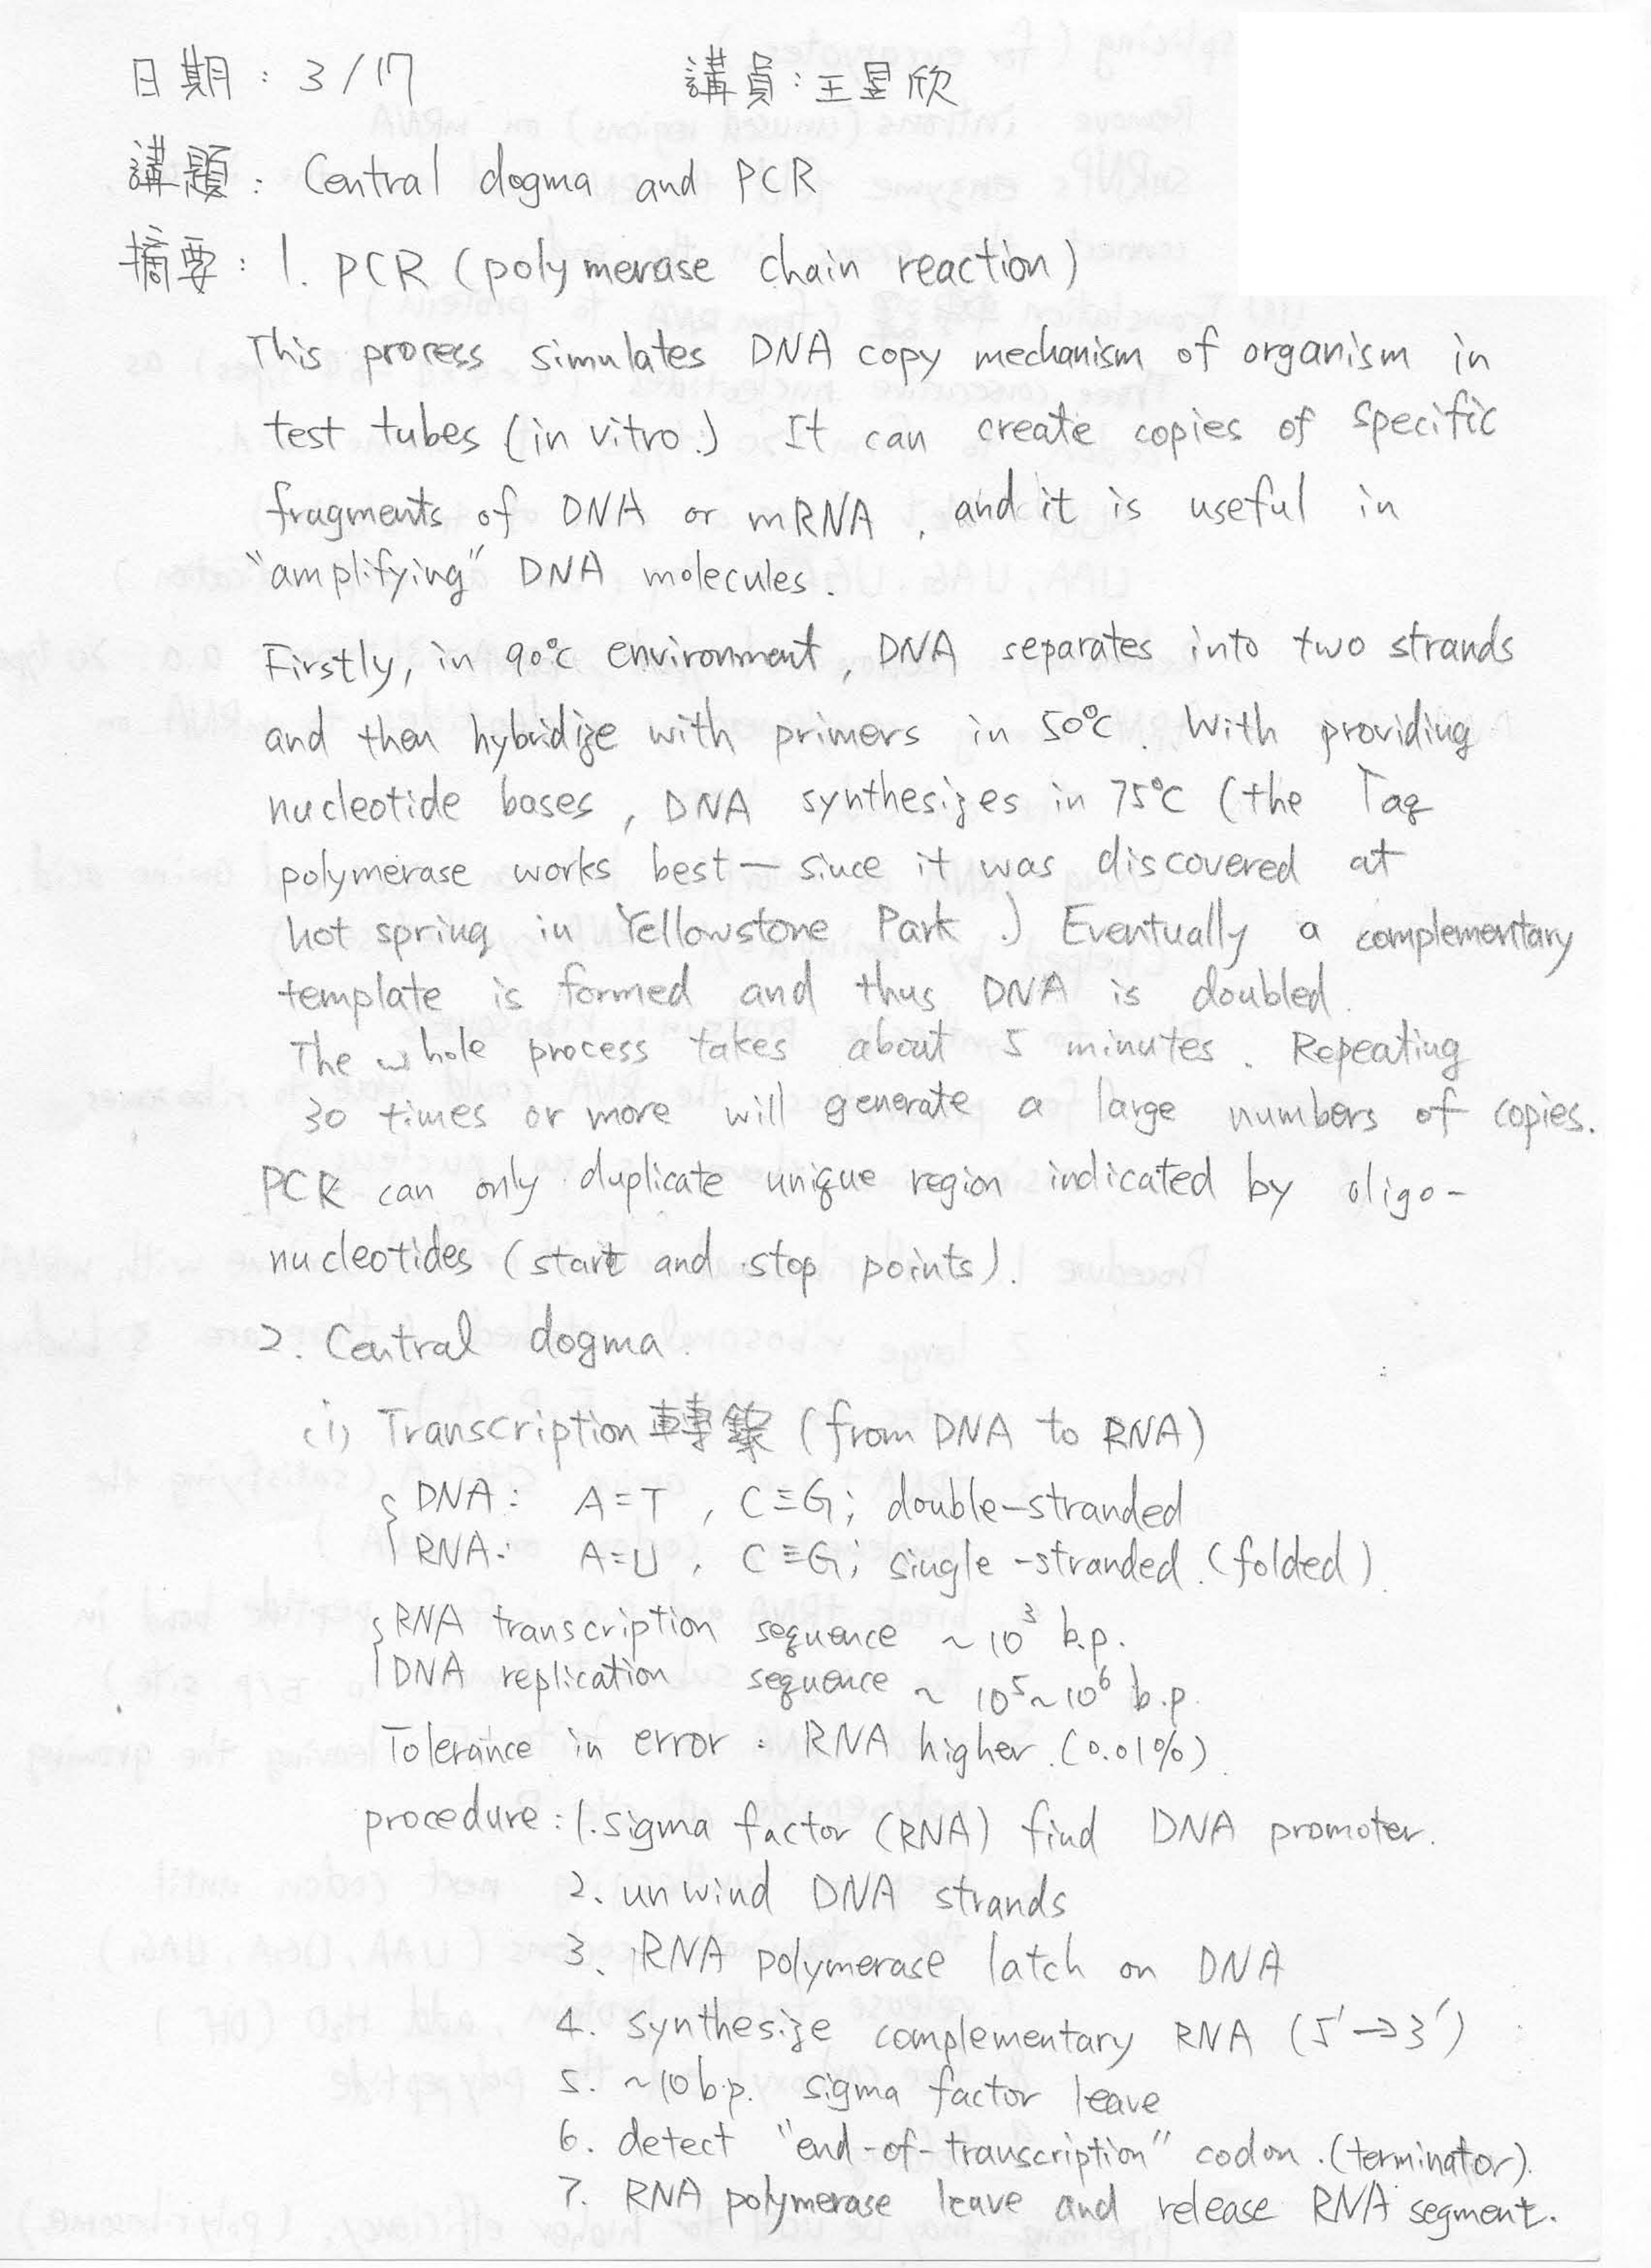 日期：3/17 講員：王昱欣
講題：Central dogma and PCR
摘要：1. PCR (polymerase chain reaction)
This process simulates DNA copy mechanism of organism in
test tubes (in vitro.) It can create copies of specific
fragments of DNA or mRNA, and it is useful in
"amplifying" DNA molecules.
Firstly, in 90°C environment, DNA separates into two strands
and then hybridize with primers in 50°C. With providing
nucleotide bases, DNA synthesizes in 75°C (the Taq
polymerase works best — since it was discovered at
hot spring in Yellowstone Park.) Eventually a complementary
template is formed and thus DNA is doubled.
The whole process takes about 5 minutes. Repeating
30 times or more will generate a large numbers of copies.
PCR can only duplicate unique region indicated by oligo-
nucleotides (start and stop points).
2. Central dogma.
(i) Transcription 轉錄 (from DNA to RNA)
DNA: A=T, C≡G; double-stranded
RNA: A=U, C≡G; single-stranded.(folded).
RNA transcription sequence ~10³ b.p.
DNA replication sequence ~ 10⁵~10⁶ b.p.
Tolerance in error: RNA higher.(0.01%).
procedure: 1. sigma factor (RNA) find DNA promoter.
2. unwind DNA strands
3. RNA polymerase latch on DNA
4. synthesize complementary RNA (5'→3')
5. ~10 b.p. sigma factor leave
6. detect "end-of-transcription" codon.(terminator).
7. RNA polymerase leave and release RNA segment.